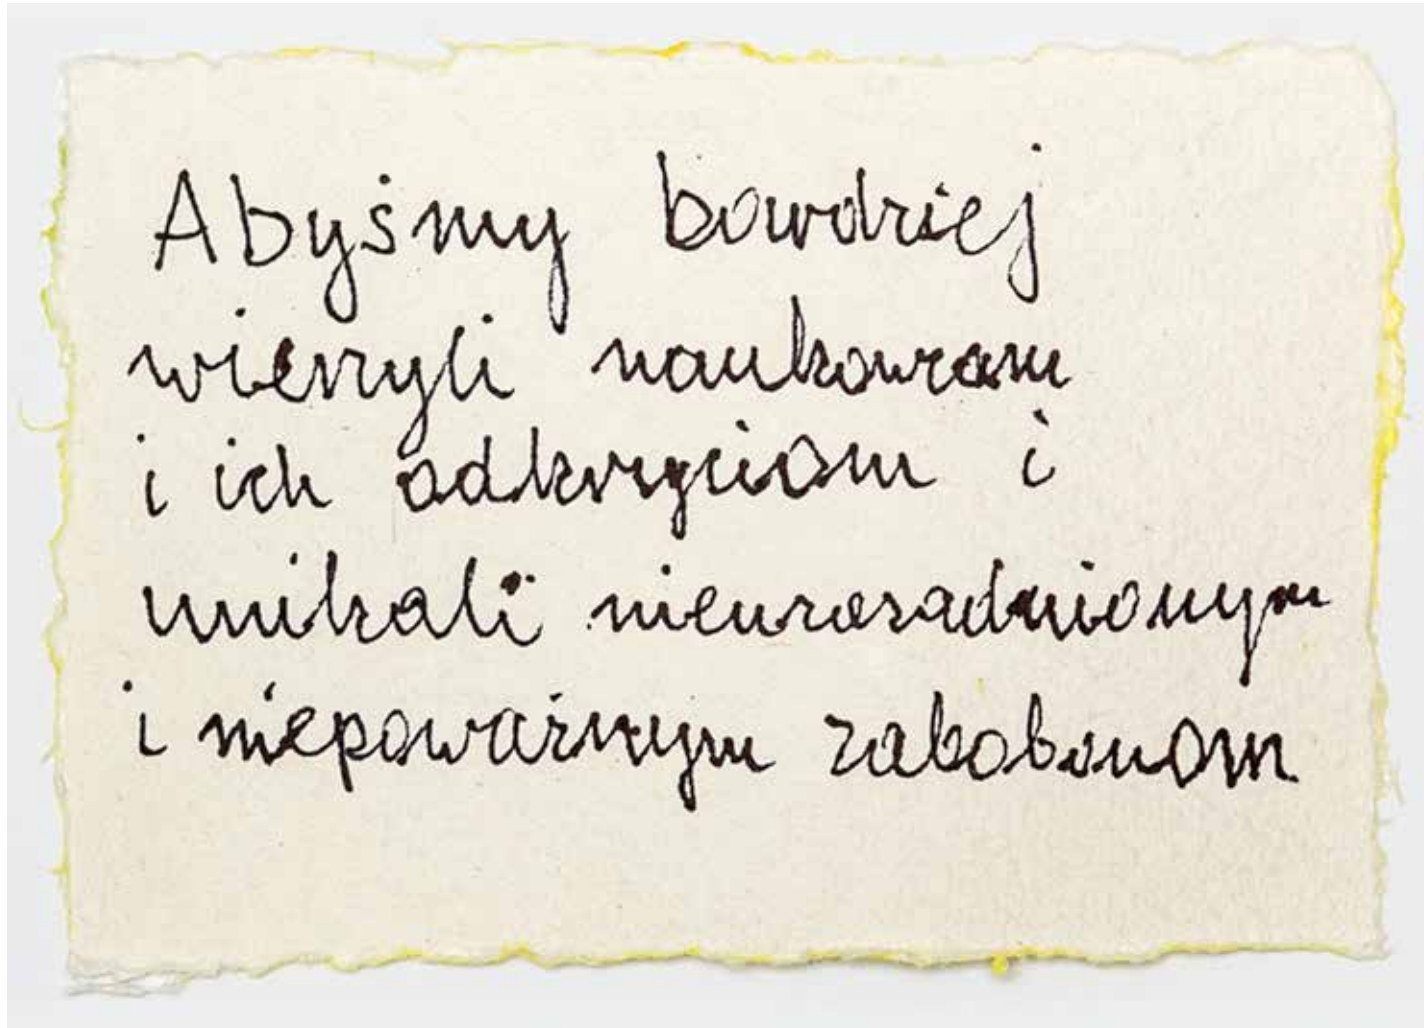 Abyśmy bardziej
wierzyli naukowcom
i ich odkryciom i
unikali nieuzasadnionym
i niepoważnym zabobonom